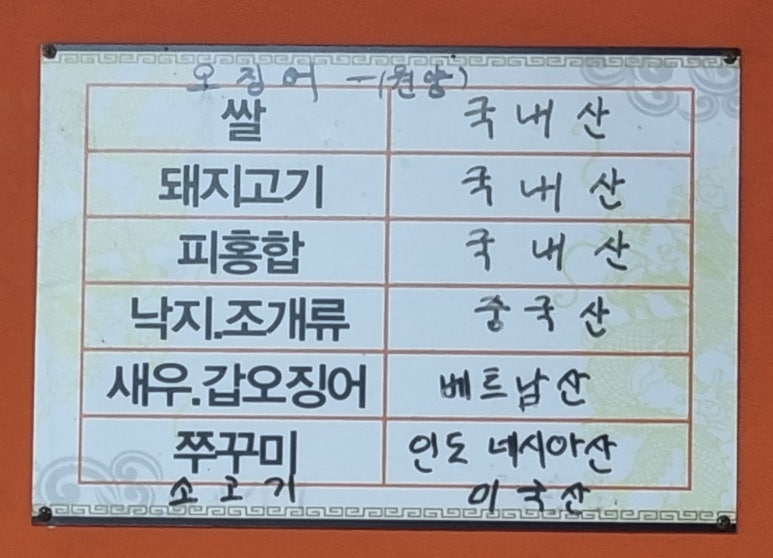 오징어 -(원양)
쌀 국내산
돼지고기 국내산
피홍합 국내산
낙지.조개류 중국산
새우.갑오징어 베트남산
쭈꾸미 인도네시아산
소고기 미국산